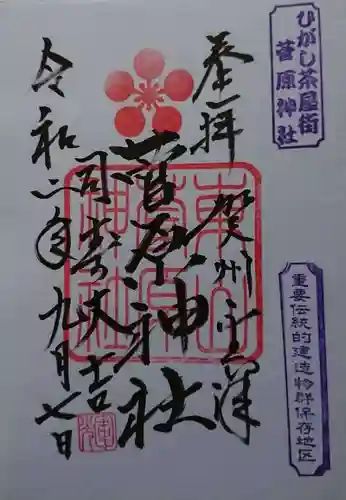 ひがし茶屋街
菅原神社
重要伝統的建造物群保存地区
奉拝
賀州金澤
菅原神社
令和二年九月七日